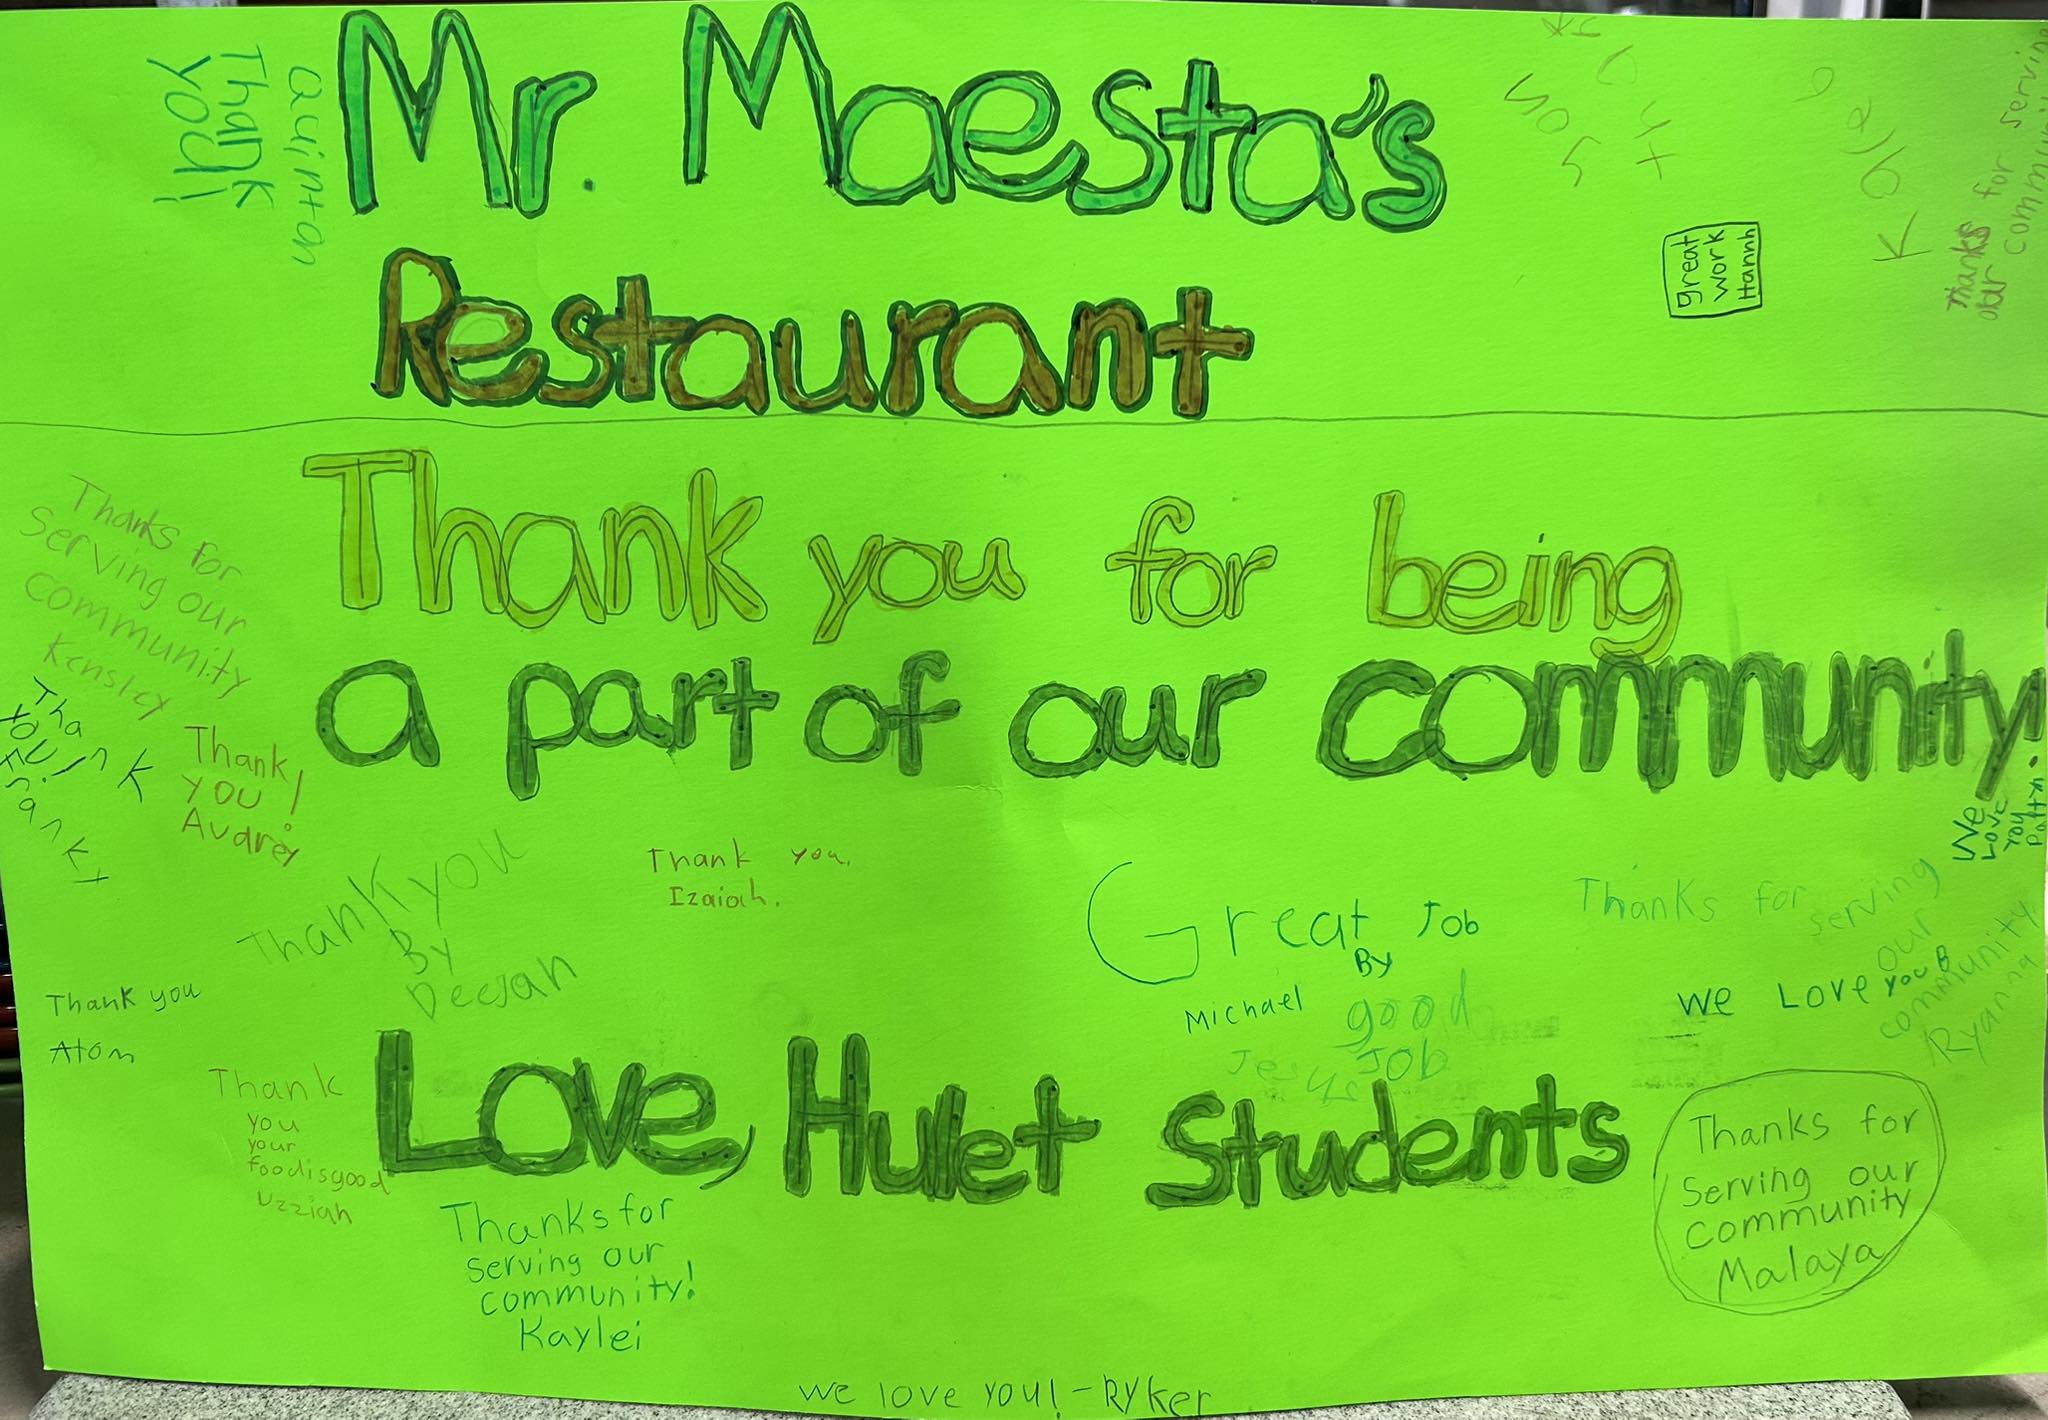 Mr. Maesta's
Restaurant
Quintan
Thank
you!
great
work
Hannh
Thanks for serving
our
Thank you for being
a part of our community!
Thanks for
serving our
community
Kensley
Thank
you!
Thank
you!
Audrey
We
Love
you
Thank you
By
Deejan
Thank you.
Izaiah.
Great Job
By
Michael
good
Job
Jesus
Thanks for serving
our
community
Ryanna
We Love you
Thank you
Atom
Thank
you
your
foodisgood
Uzziah
Love, Hulet Students
Thanks for
serving our
community!
Kaylei
Thanks for
Serving our
community
Malaya
we love you! - Ryker